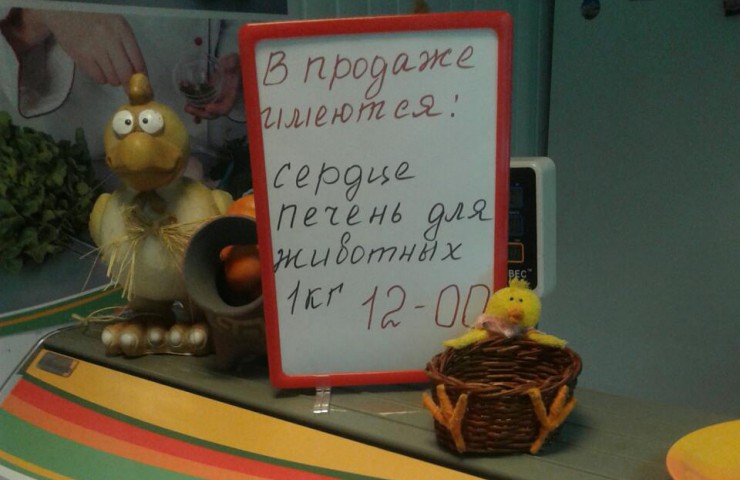 В продаже
имеются:
сердце
печень для
животных
1кг 12-00
ВЕС™